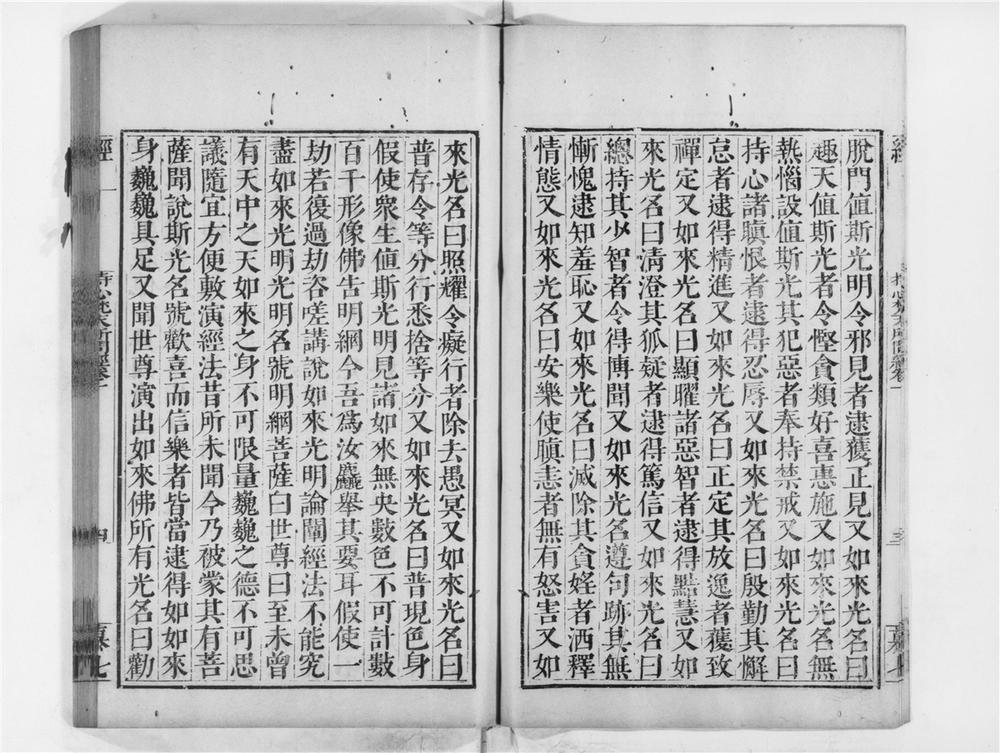 脫門值斯光明令邪見者逮獲正見又如來光名曰
趣天值斯光者令慳貪類好喜惠施又如來光名無
熱惱設值斯光其犯惡者奉持禁戒又如來光名曰
持心諸瞋恨者逮得忍辱又如來光名曰殷勤其懈
怠者逮得精進又如來光名曰正定其放逸者獲致
禪定又如來光名曰顯曜諸惡智者逮得黠慧又如
來光名曰清澄其狐疑者逮得篤信又如來光名曰
總持其少智者令得博聞又如來光名遵句跡其無
慚愧逮知羞恥又如來光名曰滅除其貪婬者洒釋
情態又如來光名曰安樂使瞋恚者無有怒害又如
來光名曰照耀令癡行者除去愚冥又如來光名曰
普存令等分行悉捨等分又如來光名曰普現色身
假使眾生值斯光明見諸如來無央數色不可計數
百千形像佛告明網今吾為汝麤舉其要耳假使一
劫若復過劫咨嗟講說如來光明論闡經法不能究
盡如來光明光明名號明網菩薩白世尊曰至未曾
有天中之天如來之身不可限量巍巍之德不可思
議隨宜方便敷演經法昔所未聞今乃被蒙其有菩
薩聞說斯光名號歡喜而信樂者皆當逮得如如來
身巍巍具足又聞世尊演出如來佛所有光名曰勸
經一
持心梵天所問經卷一
四